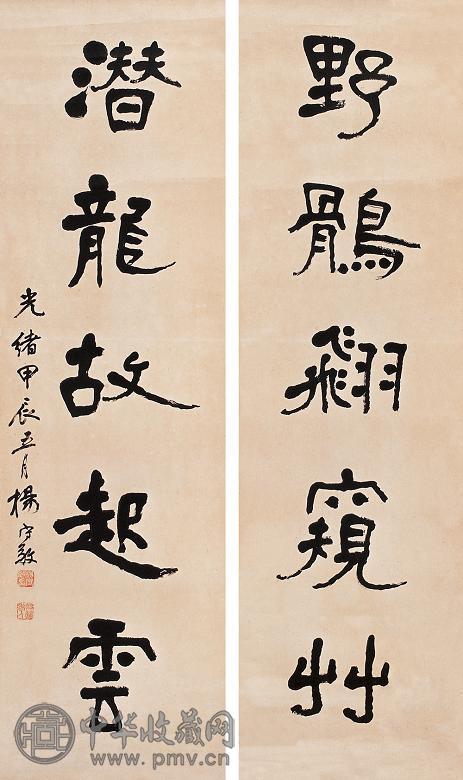 野鶻翻窺艸
潜龍故起雲
光緒甲辰五月楊守敬
中华收藏网
www.pmv.cn